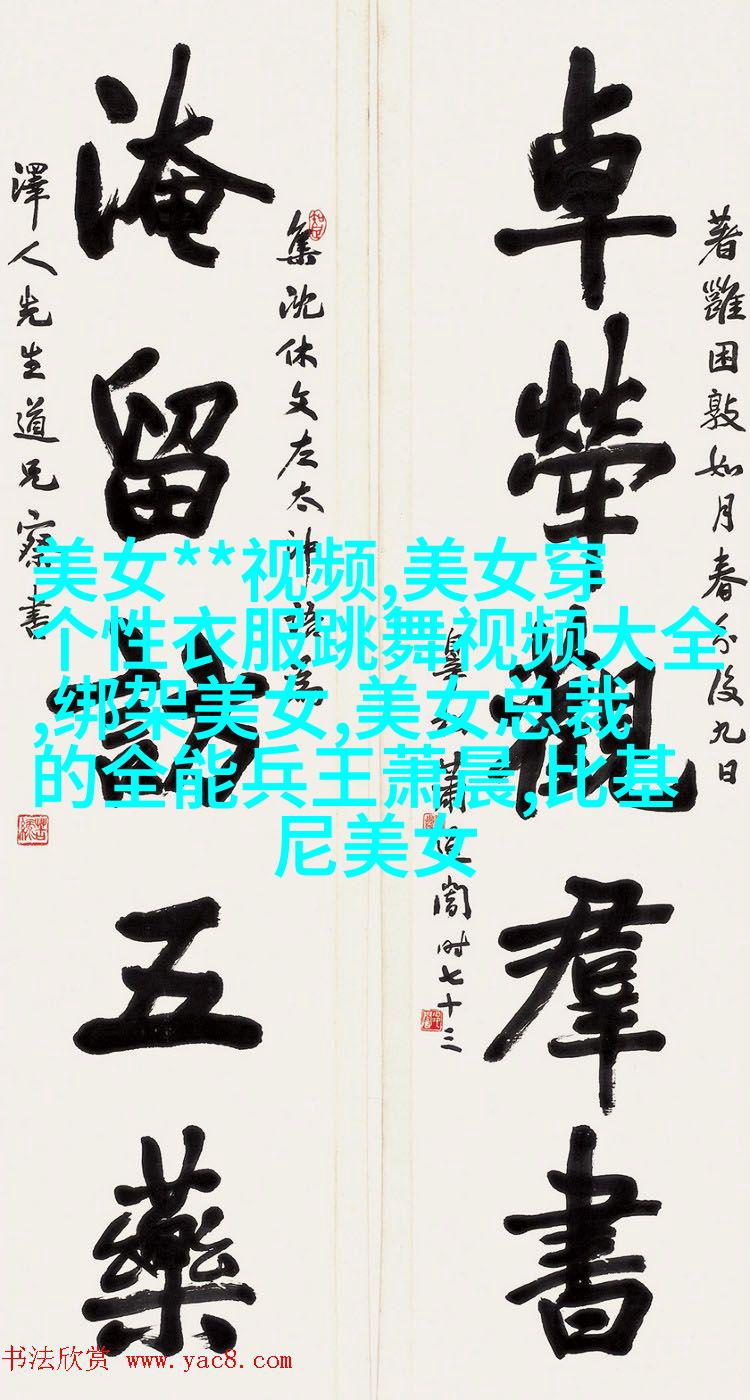 著雝困敦如月春分後九日
卓犖觀羣書
蕭退闇時七十三
集沈休文左太沖語為
淹留訪五藥
澤人先生道兄察書
美女**视频,美女穿
个性衣服跳舞视频大全
,绑架美女,美女总裁
的全能兵王萧晨,比基
尼美女
书法欣赏 www.yac8.com